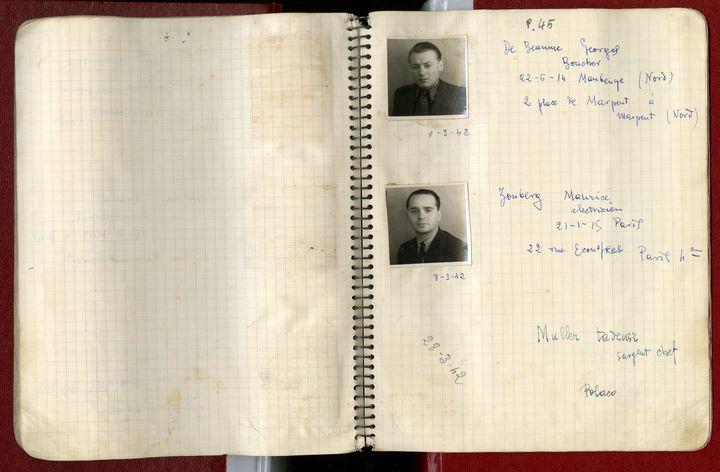 P. 45
De Beaume Georges
Boucher
22-6-14 Maubenge (Nord)
2 place de Marpent à
Marpent (Nord)
8-3-42
Zonberg Maurice
electricien
21-1-15 Paris
22 rue Paris 4
8-3-42
28-3-42
Muller Tadeusz
sargent chef
Polaco